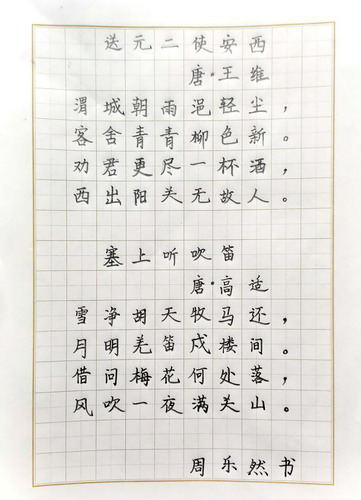 送元二使安西
唐·王维
渭城朝雨浥轻尘，
客舍青青柳色新。
劝君更尽一杯酒，
西出阳关无故人。
塞上听吹笛
唐·高适
雪净胡天牧马还，
月明羌笛戍楼间。
借问梅花何处落，
风吹一夜满关山。
周乐然书